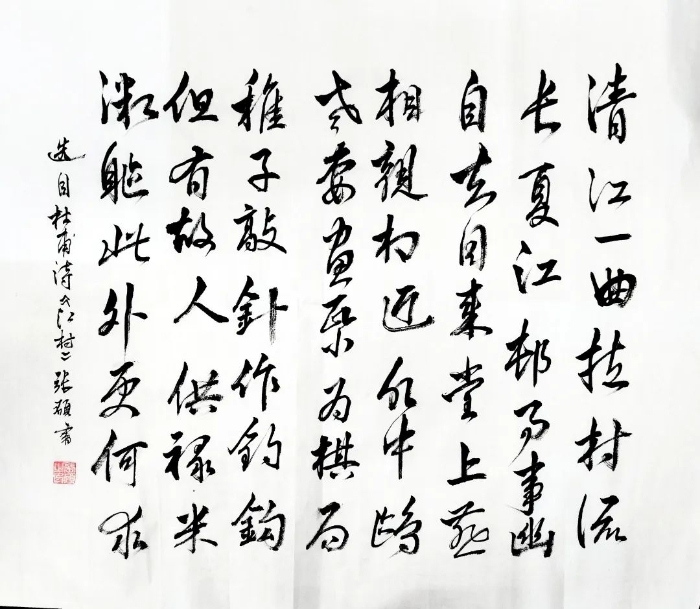 清江一曲抱村流
长夏江邨事事幽
自去自来堂上燕
相親相近水中鸥
老妻画紙为棋局
稚子敲針作钓鈎
但有故人供禄米
微躯此外更何求
选自杜甫诗《江村》张硕书